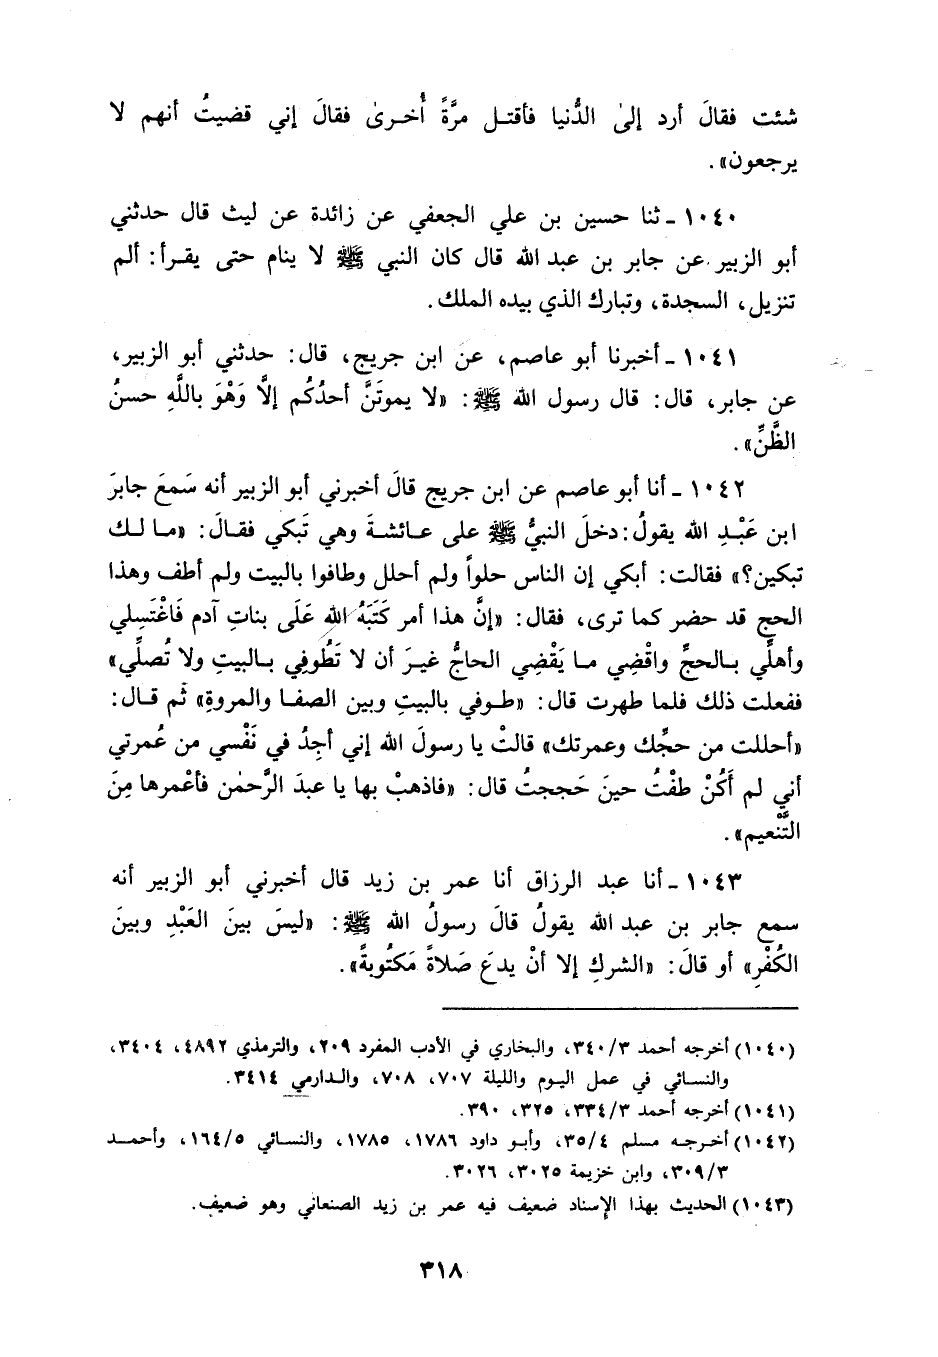 شئت فقالَ أرد إلىٰ الدُّنيا فأقتل مرَّةً أُخرىٰ فقالَ إني قضيتُ أنهم لا
يرجعون».
١٠٤٠ ـ ثنا حسين بن علي الجعفي عن زائدة عن ليث قال حدثني
أبو الزبير عن جابر بن عبد الله قال كان النبي ﷺ لا ينام حتى يقرأ: ألم
تنزيل، السجدة، وتبارك الذي بيده الملك.
١٠٤١ ـ أخبرنا أبو عاصم، عن ابن جريج، قال: حدثني أبو الزبير،
عن جابر، قال: قال رسول الله ﷺ: «لا يموتَنَّ أحدُكُم إلَّا وَهْوَ باللَّهِ حسنُ
الظَّنِّ».
١٠٤٢ ـ أنا أبو عاصم عن ابن جريج قالَ أخبرني أبو الزبير أنه سَمعَ جابرَ
ابن عَبْدِ الله يقولُ: دخلَ النبيُّ ﷺ على عائشةَ وهي تَبكي فقالَ: «ما لك
تبكين؟» فقالت: أبكي إن الناس حلواً ولم أحلل وطافوا بالبيت ولم أطف وهذا
الحج قد حضر كما ترى، فقال: «إنَّ هذا أمر كَتَبَهُ الله عَلَى بناتِ آدم فَاغْتَسِلي
وأهلِّي بالحجِّ واقْضِي ما يَقْضِي الحاجُّ غيرَ أن لا تَطُوفِي بالبيتِ ولا تُصلِّي»
ففعلت ذلك فلما طهرت قال: «طوفي بالبيتِ وبين الصفا والمروةِ» ثم قال:
«أحللت من حجِّك وعمرتك» قالتْ يا رسولَ الله إني أجِدُ في نَفْسي من عُمرتي
أني لم أَكُنْ طفْتُ حينَ حَججتُ قال: «فاذهبْ بها يا عبدَ الرَّحمٰن فأعْمرها مِنَ
التَّنْعيم».
١٠٤٣ ـ أنا عبد الرزاق أنا عمر بن زيد قال أخبرني أبو الزبير أنه
سمع جابر بن عبد الله يقولُ قالَ رسولُ الله ﷺ: «ليسَ بينَ العَبْدِ وبينَ
الكُفْرِ» أو قالَ: «الشركِ إلا أنْ يدعَ صَلاةً مَكتُوبةً».
(١٠٤٠) أخرجه أحمد ٣/ ٣٤٠، والبخاري في الأدب المفرد ٢٠٩، والترمذي ٤٨٩٢، ٣٤٠٤،
والنسائي في عمل اليوم والليلة ٧٠٧، ٧٠٨، والدارمي ٣٤١٤.
(١٠٤١) أخرجه أحمد ٣/ ٣٣٤، ٣٢٥، ٣٩٠.
(١٠٤٢) أخرجه مسلم ٤/ ٣٥، وأبو داود ١٧٨٦، ١٧٨٥، والنسائي ٥/ ١٦٤، وأحمد
٣/ ٣٠٩، وابن خزيمة ٣٠٢٥، ٣٠٢٦.
(١٠٤٣) الحديث بهذا الإسناد ضعيف فيه عمر بن زيد الصنعاني وهو ضعيف.
٣١٨